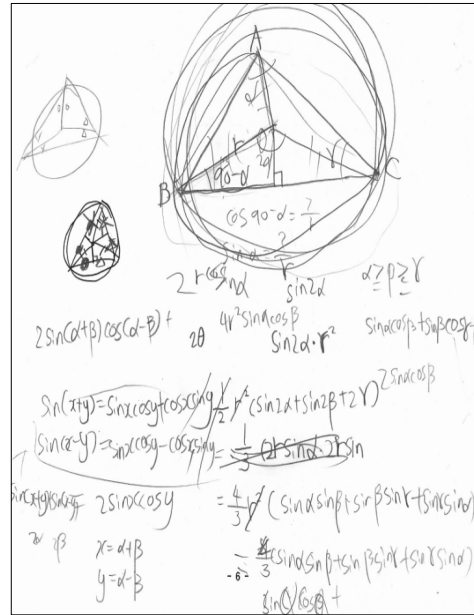 A
B
C
r
90-α
γ
cos 90-α = ?/r
sinα
2r sinα
sin2α
α≥β≥γ
2sin(α+β)cos(α-β)+
2θ
4r²sinαcosβ
sin2α·r²
sinαcosβ+sinβcosγ
sin(x+y)=sinxcosy+cosxsiny
½r²(sin2α+sin2β+2γ)
2sinαcosβ
sin(x-y)=sinxcosy-cosxsiny
=⅓(2rsinα·2rsin
2sinxcosy
=4/3 r²(sinαsinβ+sinβsinγ+sinγsinα)
2α 2β
x=α+β
y=α-β
=4/3(sinαsinβ+sinβsinγ+sinγsinα)
- 6 -